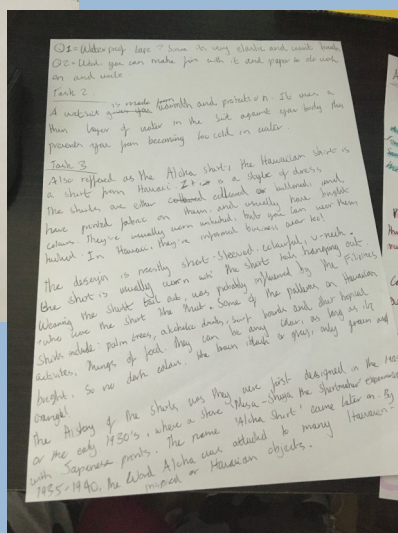 Q1 = Waterproof tape? Since its very elastic and wont break
Q2 = Wood. you can make fire with it and paper to do work
on and write.
Task 2
A wetsuit is made from warmth and protection. It uses a
thin layer of water in the suit against your body. this
prevents you from becoming too cold in water.
Task 3
Also reffered as the Aloha shirt, the Hawaiian shirt is
a shirt from Hawaii. It is a style of dress
The shirts are either collared or buttoned, and
have printed fabric on them, and usually have bright
colours. They're usually worn untucked, but you can wear them
tucked. In Hawaii, they're informal business wear too!
The design is mostly short-sleeved, colourful, v-neck.
the shirt is usually worn with the shirt tail hanging out.
Wearing the shirt tail out, was probably influenced by the Filipinos
who wore the shirt like that. Some of the patterns on Hawaiian
Shirts include: palm trees, alchoholic drinks, surf boards and other tropical
activites, things of food. They can be any colour, as long as its
bright. So no dark colours like brown, black or gray, only green and
orange!
The History of the shirts, was they were first designed in the
or the early 1930's, where a store (Musa-Shiya the Shirtmaker) experimented
with Japanese prints. The name 'Aloha Shirt' came later on. By
1935-1940, the Word Aloha was attached to many Hawaiian-
inspired or Hawaiian objects.